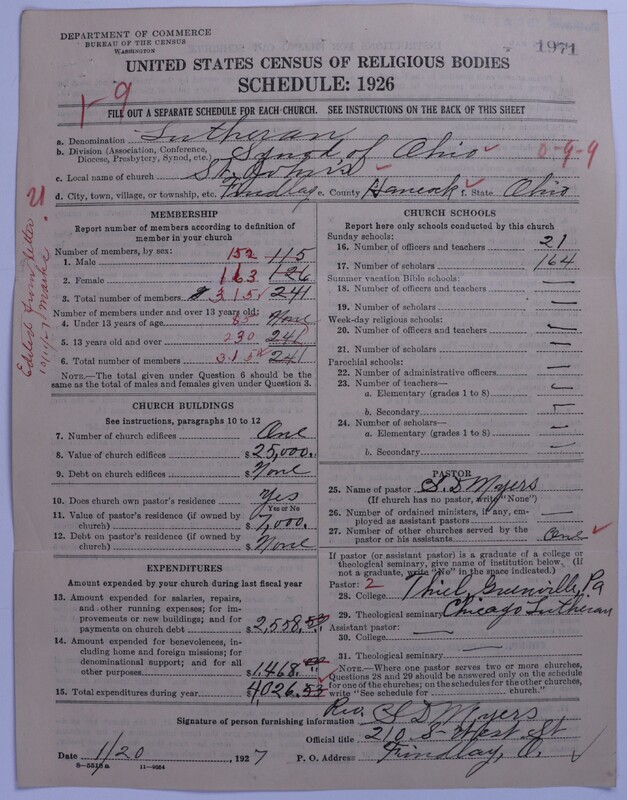 DEPARTMENT OF COMMERCE
BUREAU OF THE CENSUS
WASHINGTON
1971
UNITED STATES CENSUS OF RELIGIOUS BODIES
SCHEDULE: 1926
1-9
FILL OUT A SEPARATE SCHEDULE FOR EACH CHURCH. SEE INSTRUCTIONS ON THE BACK OF THIS SHEET
a. Denomination Lutheran
b. Division (Association, Conference, Diocese, Presbytery, Synod, etc.) Synod of Ohio 0-9-9
c. Local name of church St. Johns
d. City, town, village, or township, etc. Findlay e. County Hancock f. State Ohio
MEMBERSHIP
Report number of members according to definition of
member in your church
Number of members, by sex:
1. Male 152 115
2. Female 163 126
3. Total number of members 315 241
Number of members under and over 13 years old:
4. Under 13 years of age 85 None
5. 13 years old and over 230 241
6. Total number of members 315 241
NOTE.—The total given under Question 6 should be the
same as the total of males and females given under Question 3.
Edited from letter
CHURCH BUILDINGS
See instructions, paragraphs 10 to 12
7. Number of church edifices One
8. Value of church edifices $25,000.
9. Debt on church edifices $None
10. Does church own pastor's residence Yes
Yes or No
11. Value of pastor's residence (if owned by
church) $7,000.
12. Debt on pastor's residence (if owned by
church) $None
EXPENDITURES
Amount expended by your church during last fiscal year
13. Amount expended for salaries, repairs,
and other running expenses; for im-
provements or new buildings; and for
payments on church debt $2,558.53
14. Amount expended for benevolences,
including home and foreign missions; for
denominational support; and for all
other purposes $1,468.00
15. Total expenditures during year $4,026.53
CHURCH SCHOOLS
Report here only schools conducted by this church
Sunday schools:
16. Number of officers and teachers 21
17. Number of scholars 164
Summer vacation Bible schools:
18. Number of officers and teachers —
19. Number of scholars —
Week-day religious schools:
20. Number of officers and teachers —
21. Number of scholars —
Parochial schools:
22. Number of administrative officers —
23. Number of teachers—
a. Elementary (grades 1 to 8) —
b. Secondary —
24. Number of scholars—
a. Elementary (grades 1 to 8) —
b. Secondary —
PASTOR
25. Name of pastor S D Myers
(If church has no pastor, write "None")
26. Number of ordained ministers, if any, em-
ployed as assistant pastors —
27. Number of other churches served by the
pastor or his assistants One
If pastor (or assistant pastor) is a graduate of a college or
theological seminary, give name of institution below. (If
not a graduate, write "No" in the space indicated.)
Pastor: 2
28. College Thiel Greenville, Pa
29. Theological seminary Chicago Lutheran
Assistant pastor:
30. College —
31. Theological seminary —
NOTE.—Where one pastor serves two or more churches,
Questions 28 and 29 should be answered only on the schedule
for one of the churches; on the schedules for the other churches,
write "See schedule for ........ church."
Signature of person furnishing information Rev. S D Myers
Official title 210 S- West St
Date 1/20, 1927 P. O. Address Findlay, O.
8-5518a 11-9054